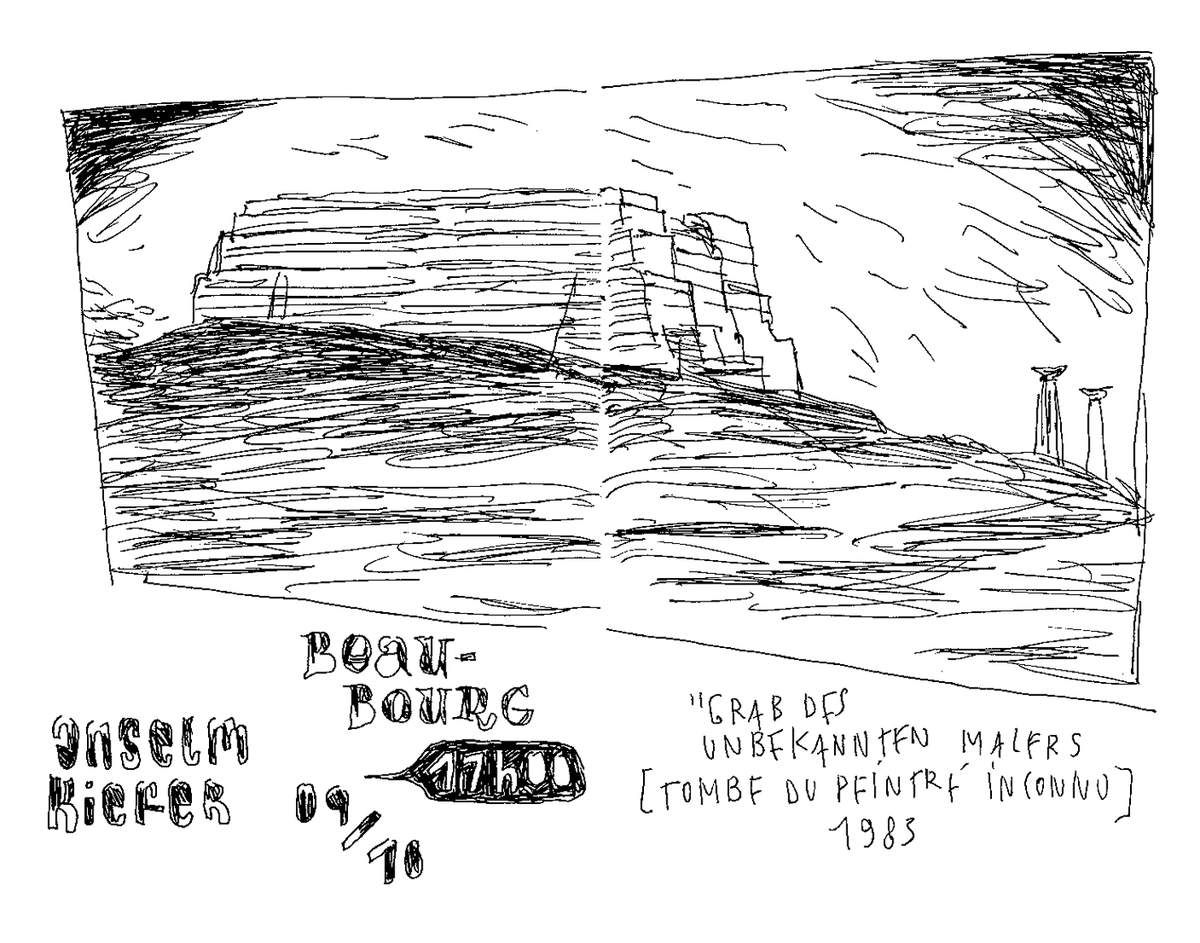 BEAU-
BOURG
anselm
Kiefer
09/10
17h00
"GRAB DES
UNBEKANNTEN MALERS
[TOMBE DU PEINTRE INCONNU]
1983